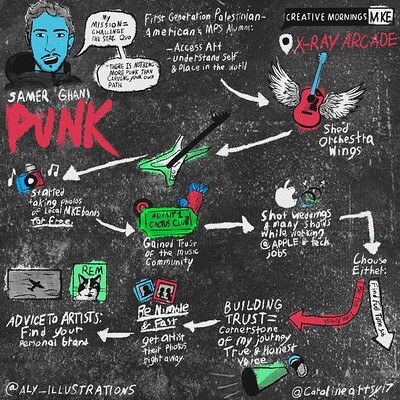 MY
MISSION=
CHALLENGE
THE STATUS QUO
"THERE IS NOTHING
MORE PUNK THAN
CARVING YOUR OWN
PATH.
First Generation Palestinian-
American & MPS Alumni.
-Access Art
-Understand Self
& Place in the World
CREATIVE MORNINGS MKE
X-RAY ARCADE
SAMER GHANI
PUNK
Shed
Orchestra
Wings
Started
taking photos
of Local MKE bands
for Free.
ADMIT 1
CACTUS CLUB
Gained Trust
of the music
Community
Shot weddings
& many shows
While working
@ APPLE & tech
jobs
Choose
Either:
BUILDING
TRUST=
Cornerstone
of my journey
True & Honest
Voice
Be Nimble
& Fast
get Artist
their Photos
right away
REM
ADVICE TO ARTISTS:
Find your
personal brand
@ALY_ILLUSTRATIONS
@Carolineartsyi7